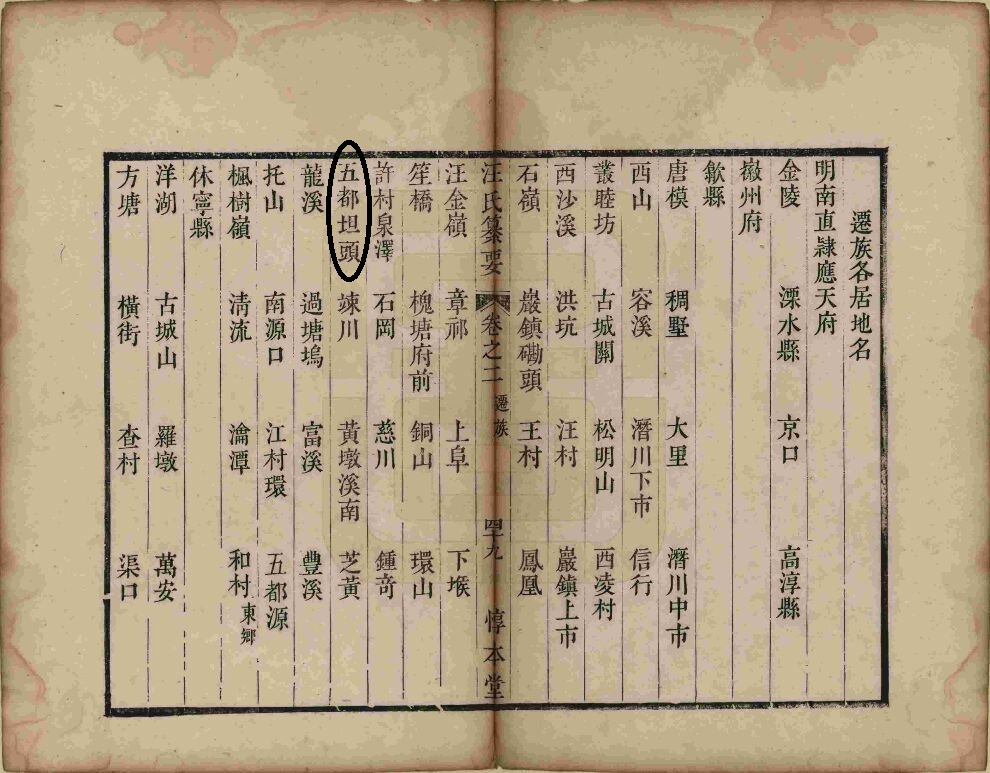 遷族各居地名
明南直隷應天府
金陵 溧水縣 京口 高淳縣
徽州府
歙縣
唐模 稠墅 大里 潛川中市
西山 容溪 潛川下市 信行
叢睦坊 古城關 松明山 西凌村
西沙溪 洪坑 汪村 巖鎮上市
石嶺 巖鎮磡頭 王村 鳳凰
汪氏纂要 卷之二 遷族 四十九 惇本堂
汪金嶺 章祁 上阜 下堠
笙橋 槐塘府前 銅山 環山
許村泉澤 石岡 慈川 鍾奇
五都坦頭 竦川 黃墩溪南 芝黃
龍溪 過塘塢 富溪 豐溪
托山 南源口 江村環 五都源
楓樹嶺 淸流 瀹潭 和村東鄉
休寧縣
洋湖 古城山 羅墩 萬安
方塘 橫街 杳村 渠口